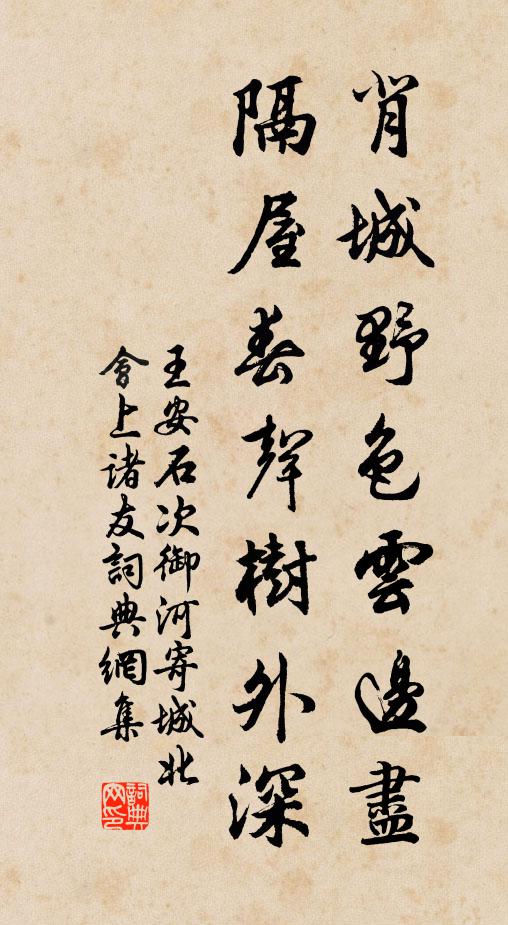 背城野色雲邊盡
隔屋春聲樹外深
王安石次御河寄城北
會上諸友詞典網集
詞典
网印